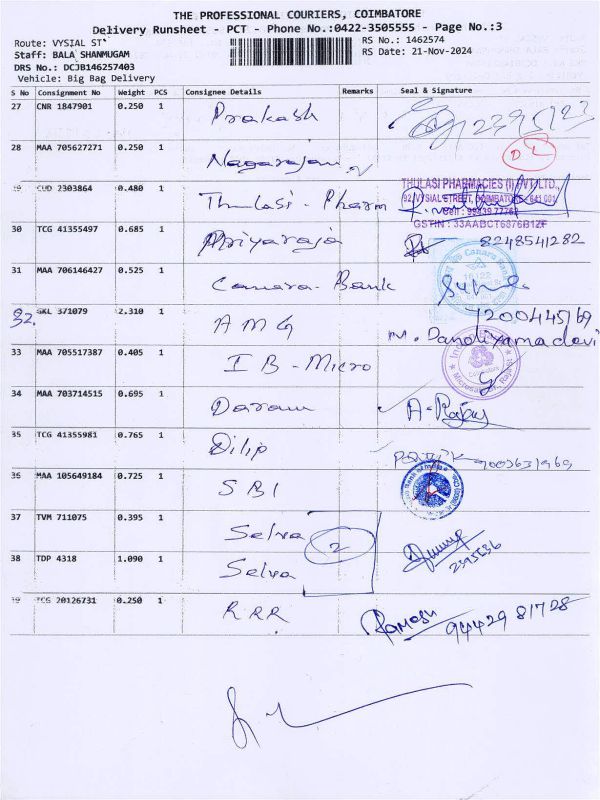 THE PROFESSIONAL COURIERS, COIMBATORE
Delivery Runsheet - PCT - Phone No.:0422-3505555 - Page No.:3
Route: VYSIAL ST RS No.: 1462574
Staff: BALA SHANMUGAM RS Date: 21-Nov-2024
DRS No.: DCJB146257403
Vehicle: Big Bag Delivery
S No Consignment No Weight PCS Consignee Details Remarks Seal & Signature
27 CNR 1847901 0.250 1 Prakash 2395123
28 MAA 705627271 0.250 1 Nagarajan
CUD 2303864 0.480 1 Thulasi - Pharm
THULASI PHARMACIES (I) PVT. LTD.,
92, VYSIAL STREET, COIMBATORE - 641 001
GSTIN : 33AABCT6876B1ZF
30 TCG 41355497 0.685 1 Priyaraja 8248541282
31 MAA 706146427 0.525 1 Canara - Bank
32. GKL 371079 2.310 1 AMG 7200445169
33 MAA 705517387 0.405 1 IB - Micro
34 MAA 703714515 0.695 1
35 TCG 41355981 0.765 1 Dilip 9003631969
36 MAA 105649184 0.725 1 SBI
37 TVM 711075 0.395 1 Selva 2
38 TDP 4318 1.090 1 Selva
TCG 20126731 0.250 1 RRR Ramesh 9442981728